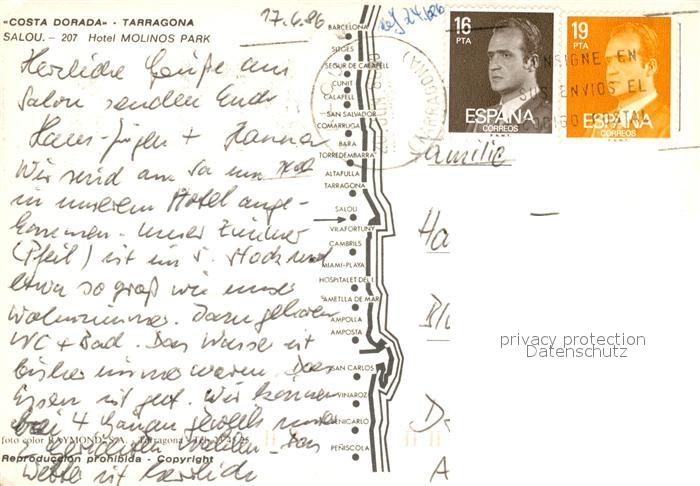 "COSTA DORADA" - TARRAGONA
SALOU. - 207 Hotel MOLINOS PARK
17.6.86
Herzliche Grüße aus
Salou senden Euch
Hans-Jürgen + Hanna
Wir sind am Sa um
in unserem Hotel ange-
kommen. Unser Zimmer
(Pfeil) ist im 5. Stock und
etwa so groß wie unser
Wohnzimmer. Dazu gehören
WC + Bad. Das Wasser ist
bisher immer warm. Das
Essen ist gut. Wir können
bei 4 Gängen jeweils unter
Gerichten wählen. Das
Wetter ist herrlich
foto color RAYMOND, S.A. - Tarragona - Tel.
Reproducción prohibida - Copyright
BARCELONA
SITGES
SEGUR DE CALAFELL
CUNIT
CALAFELL
SAN SALVADOR
COMARRUGA
BARA
TORREDEMBARRA
ALTAFULLA
TARRAGONA
SALOU
VILAFORTUNY
CAMBRILS
MIAMI-PLAYA
HOSPITALET DEL I.
AMETLLA DE MAR
AMPOLLA
AMPOSTA
SAN CARLOS
VINAROZ
BENICARLO
PEÑISCOLA
16
PTA
ESPAÑA
CORREOS
F.N.M.T.
19
PTA
ESPAÑA
CORREOS
F.N.M.T.
(TARRAGONA)
CONSIGNE EN
SUS ENVIOS EL
CODIGO
Familie
Ha
Blu
D
A
privacy protection
Datenschutz